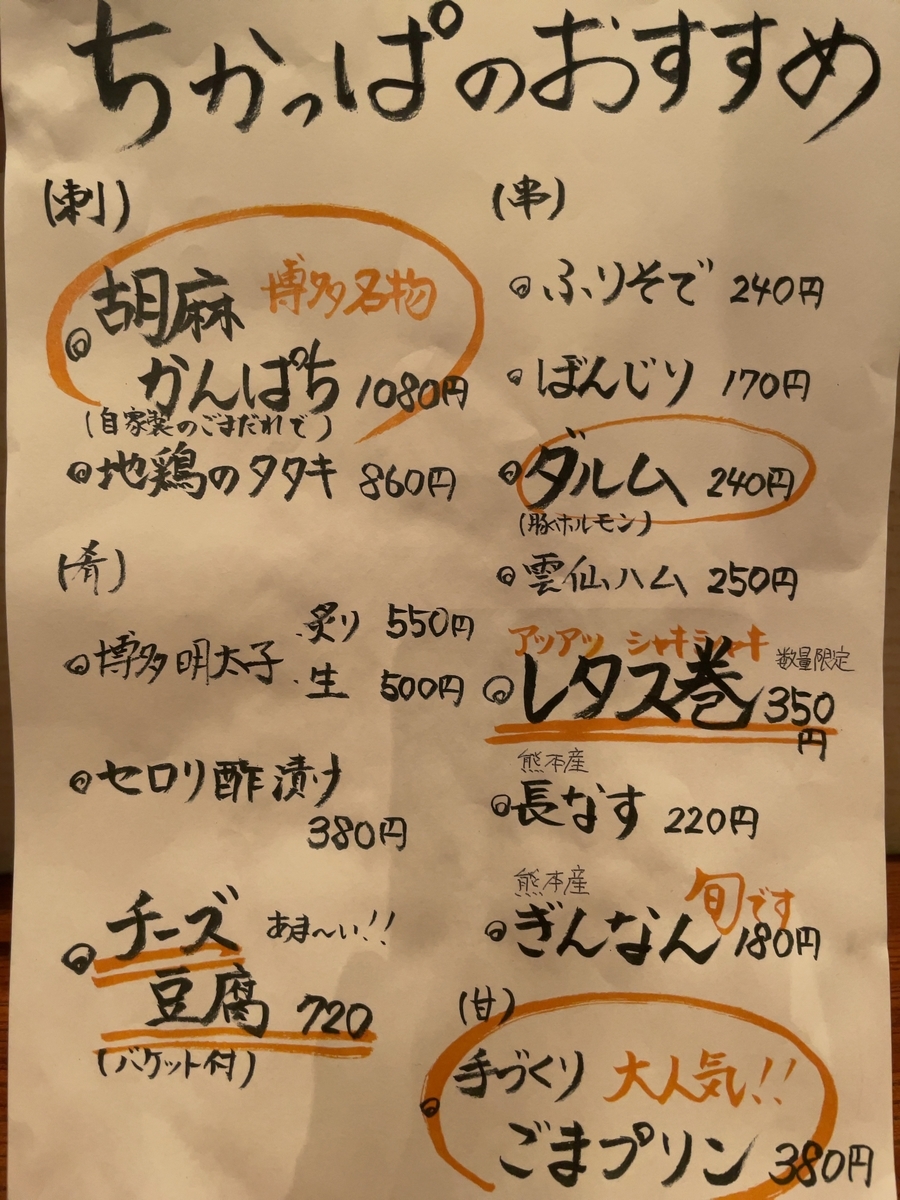 ちかっぱのおすすめ
(刺)
胡麻 博多名物
かんぱち 1080円
(自家製のごまだれで)
地鶏のタタキ 860円
(肴)
博多明太子
炙り 550円
生 500円
セロリ酢漬け
380円
チーズ あま〜い!!
豆腐 720
(バケット付)
(串)
ふりそで 240円
ぼんじり 170円
ダルム 240円
(豚ホルモン)
雲仙ハム 250円
アツアツ シャキシャキ
レタス巻 数量限定 350
円
熊本産
長なす 220円
熊本産 旬です
ぎんなん 180円
(甘)
手づくり 大人気!!
ごまプリン 380円